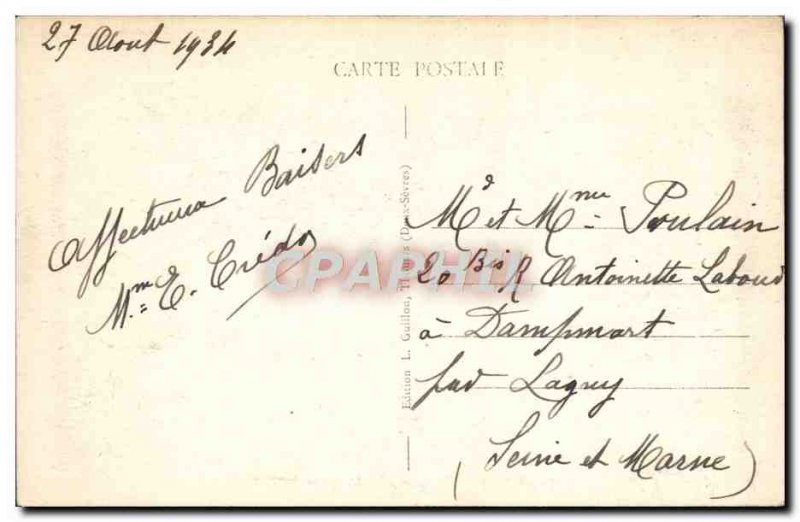 27 Aout 1934
CARTE POSTALE
Affectueux Baisers
Mme E. Crédo
Mr et Mme Poulain
20 Bis R Antoinette Laboud
à Dampmart
par Lagny
(Seine et Marne)
Edition L. Guillon, Thouars (Deux-Sèvres)
CPAPHIL